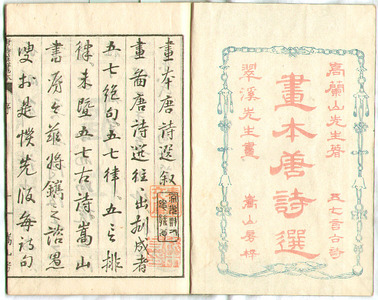 高蘭山先生著 五七言古詩
畫本唐詩選
翠溪先生畫 嵩山房梓
畫本唐詩選叙
畫首唐詩選往出刻成者
五七絕句五七律五言排
律未暨五七古詩嵩山
書房主茲將鐫之諮愚
叟於是懷先版每詩句